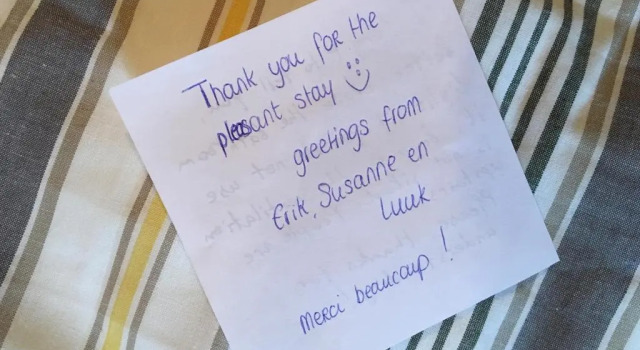 Thank you for the
pleasant stay :)
greetings from
Erik, Susanne en
Luuk
Merci beaucoup !